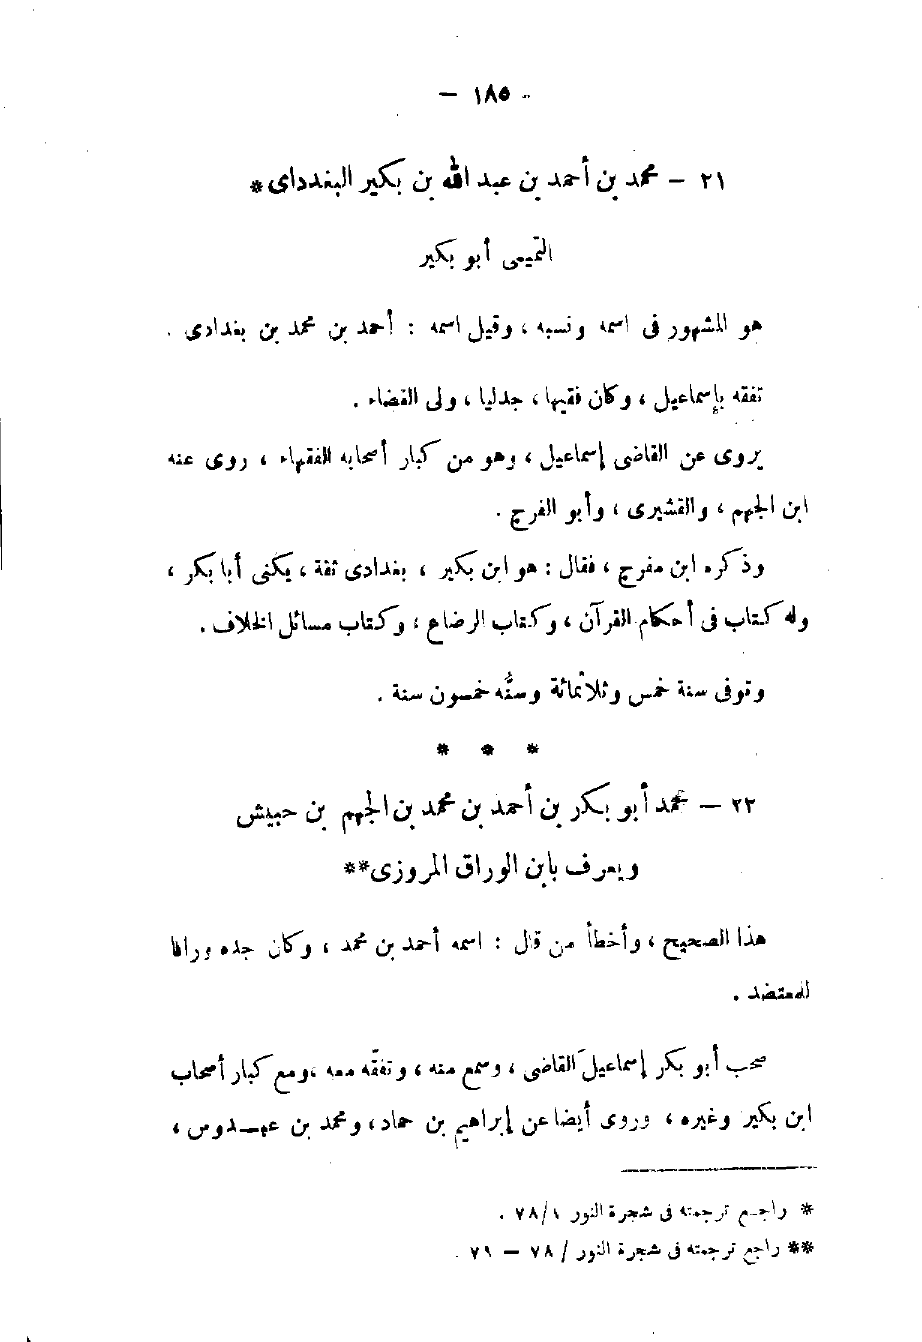 - ١٨٥ -
٢١ - محمد بن أحمد بن عبد الله بن بكير البغدداى *
التميمى أبو بكير
هو المشهور فى اسمه ونسبه ، وقيل اسمه : أحمد بن محمد بن بغدادى .
تفقه بإسماعيل ، وكان فقيها ، جدليا ، ولى القضاء .
يروى عن القاضى إسماعيل ، وهو من كبار أصحابه الفقهاء ، روى عنه
ابن الجهم ، والقشيرى ، وأبو الفرج .
وذكره ابن مفرج ، فقال : هو ابن بكير ، بغدادى ثقة ، يكنى أبا بكر ،
وله كتاب فى أحكام القرآن ، وكتاب الرضاع ، وكتاب مسائل الخلاف .
وتوفى سنة خمس وثلاثمائة وسنُّه خمسون سنة .
* * *
٢٢ - محمد أبو بكر بن أحمد بن محمد بن الجهم بن حبيش
ويعرف بابن الوراق المروزى**
هذا الصحيح ، وأخطأ من قال : اسمه أحمد بن محمد ، وكان جده وراقا
للمعتضد .
صحب أبو بكر إسماعيلَ القاضى ، وسمع منه ، وتفقَّه معه ، ومع كبار أصحاب
ابن بكير وغيره ، وروى أيضا عن إبراهيم بن حماد ، ومحمد بن عبدوس ،
* راجع ترجمته فى شجرة النور ١/ ٧٨ .
** راجع ترجمته فى شجرة النور / ٧٨ - ٧٩ .